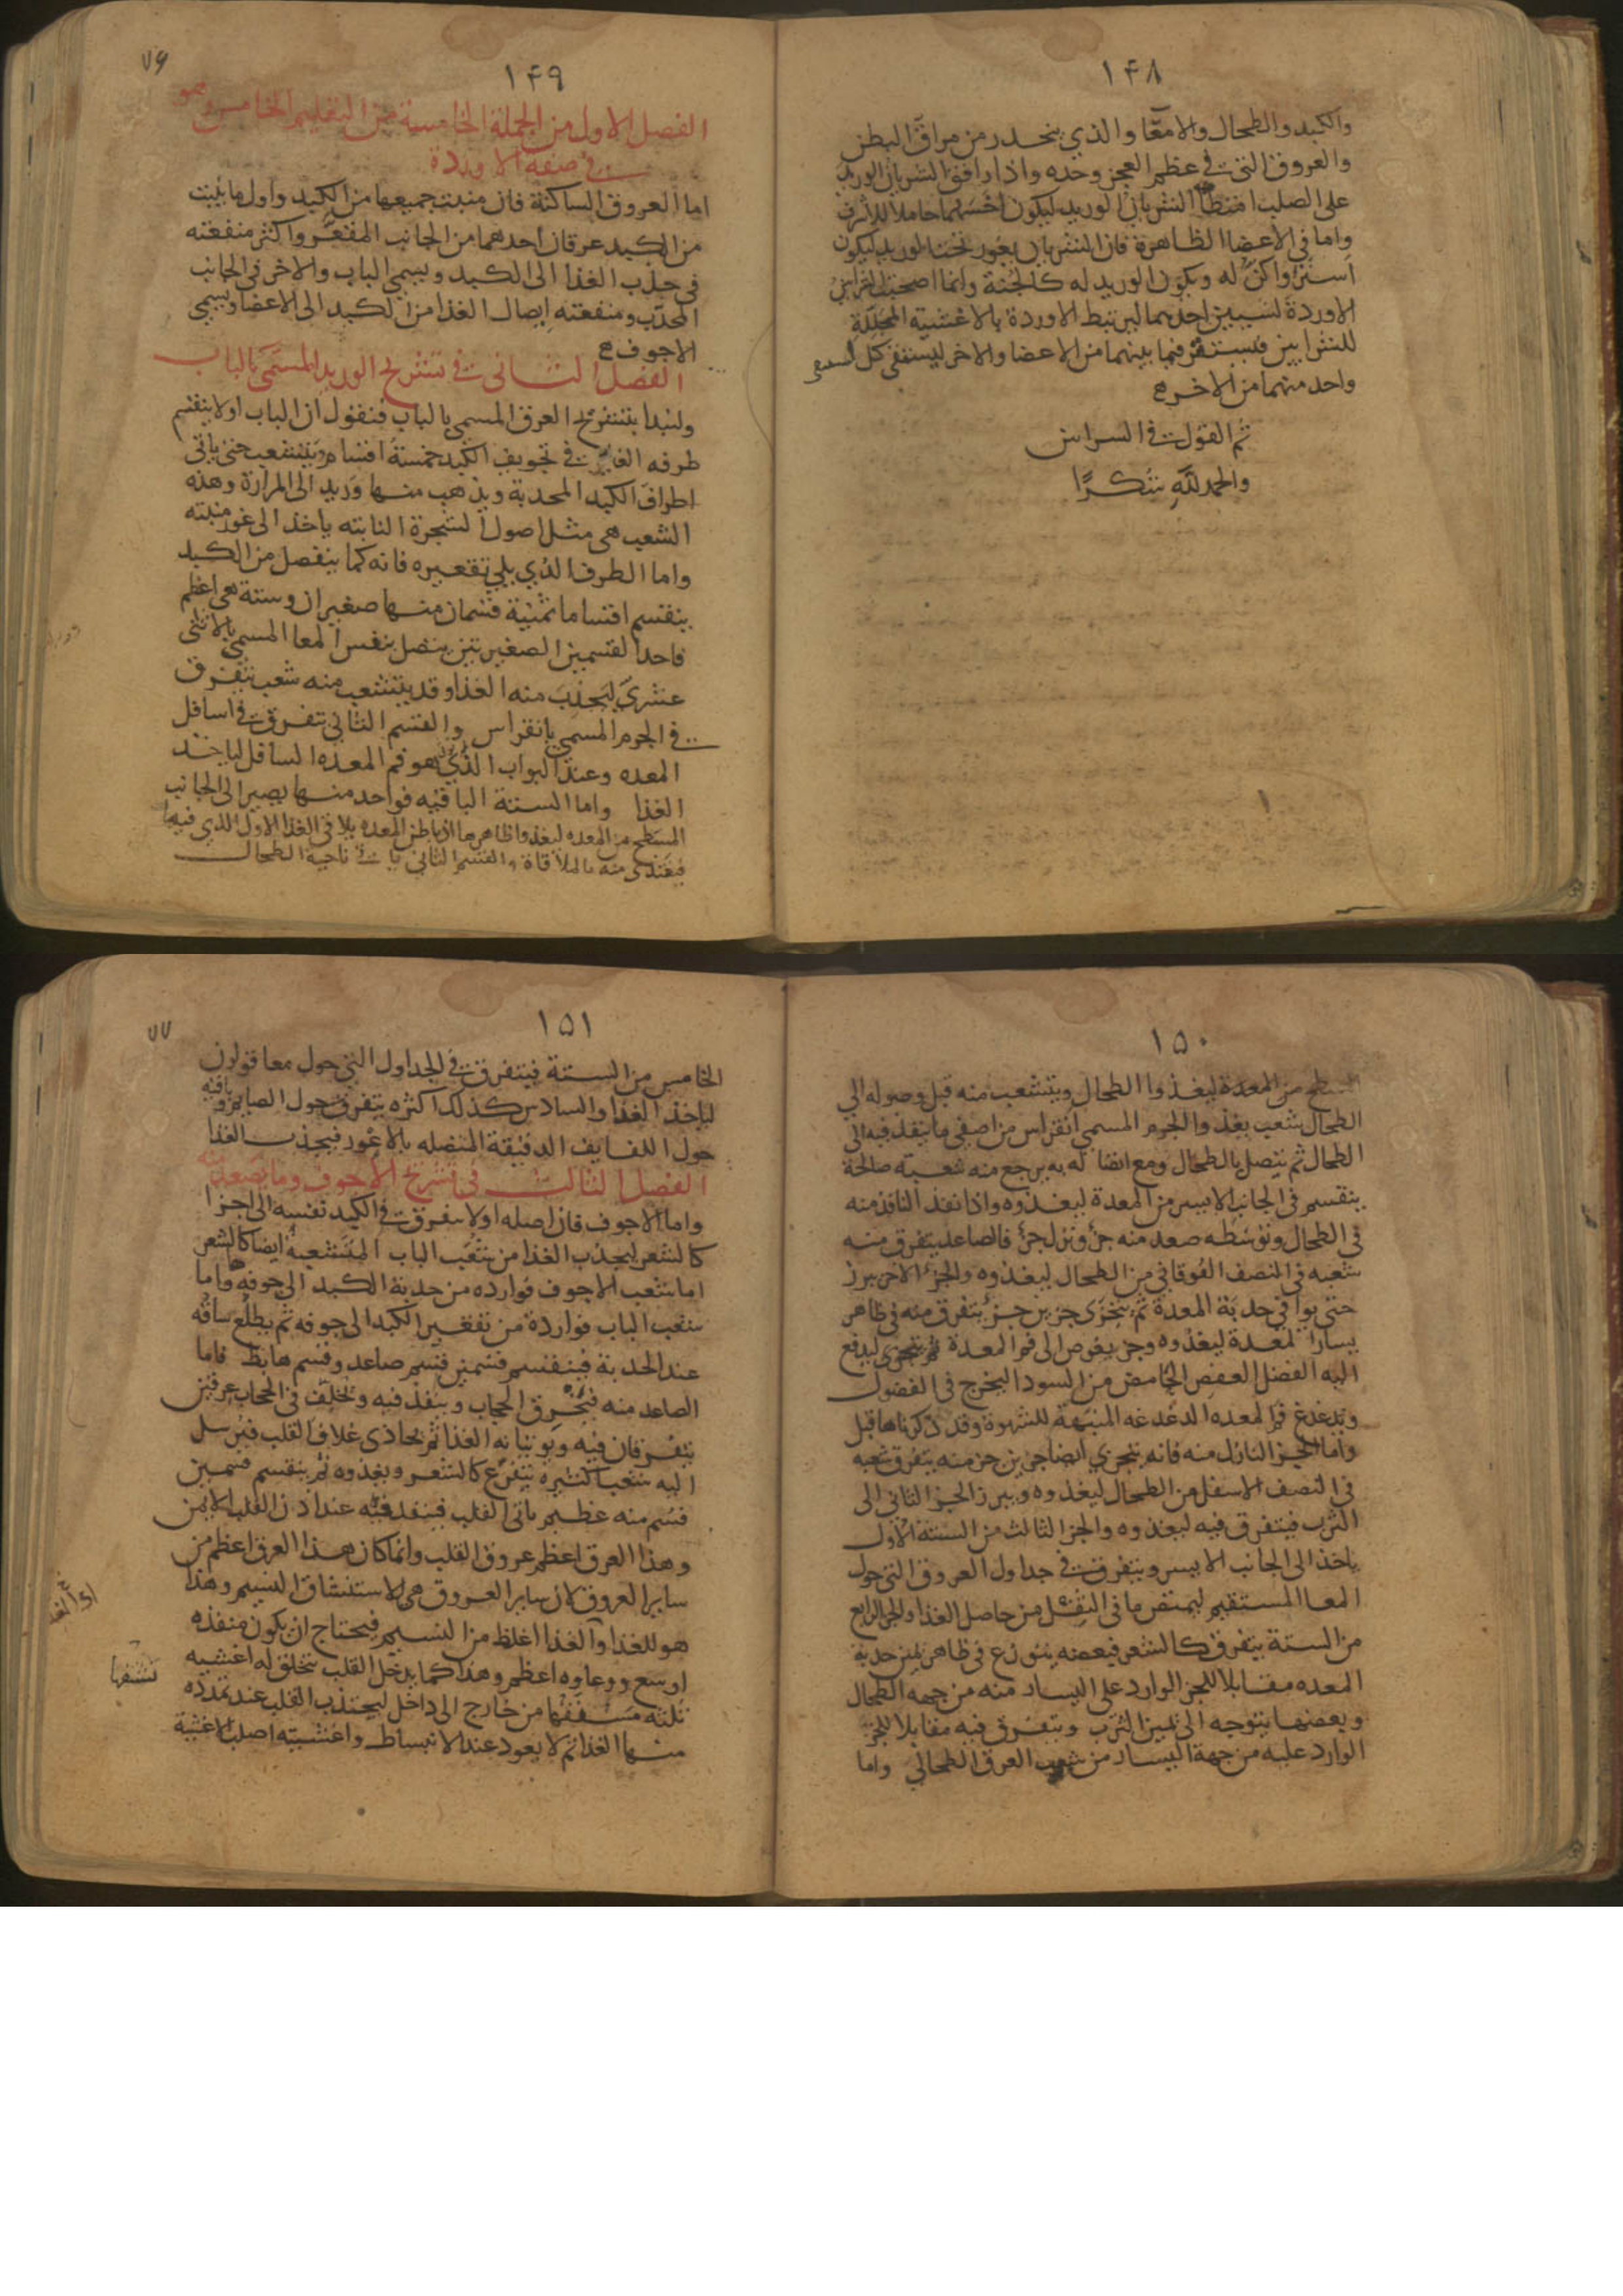 ١۴٨
والكبد والطحال والامعا والذي ينحدر من مراق البطن
والعروق التى فى عظم العجز وحده واذا رافق الشريان الوريد
على الصلب امتطا الشريان الوريد ليكون اخسهما حاملا للاشرف
واما فى الاعضا الظاهرة فان الشريان يغور تحت الوريد ليكون
استر واكن له ويكون الوريد له كالجنة وانما اصحبت الشرايين
الاوردة لسببين احدهما ليرتبط الاوردة بالاغشية المجللة
للشرايين فيستقر فيما بينهما من الاعضا والاخر ليستقى كل
واحد منهما من الاخر
تم القول فى السراىىن
والحمد لله شكرًا
١۴٩
٧۶
الفصل الاول من الجملة الخامسة من التعليم الخامس وهو
فى صفة الاوردة
اما العروق الساكنة فان منبت جميعها من الكبد واول ما ينبت
من الكبد عرقان احدهما من الجانب المقعر واكثر منفعته
فى جذب الغذا الى الكبد ويسمى الباب والاخر فى الجانب
المحدّب ومنفعته ايصال الغذا من الكبد الى الاعضا ويسمى
الاجوف
الفصل الثانى فى تشريح الوريد المسمى بالباب
ولنبدا بتشريح العرق المسمى بالباب فنقول ان الباب اولا ينقسم
طرفه الغاير فى تجويف الكبد خمسة اقسام ويتشعب حتى ياتى
اطراف الكبد المحدبة ويذهب منها وريد الى المرارة وهذه
الشعب هى مثل اصول الشجرة النابته ياخذ الى غور منبته
واما الطرف الذي يلي تقعيره فانه كما ينفصل من الكبد
ينقسم اقساما ثمنية قسمان منها صغيران وستة هى اعظم
فاحد القسمين الصغيرين يتصل بنفس المعا المسمى بالاثنى
عشري ليجذب منه الغذا وقد يتشعب منه شعب يتفرق
فى الجرم المسمى بانقراس والقسم الثانى يتفرق فى اسافل
المعده وعند البواب الذي هو فم المعده السافل لياخذ
الغذا واما الستة الباقيه فواحد منها يصير الى الجانب
المسطح من المعده ليغذوا ظاهرها اذ باطن المعده يلاقى الغذا الاول الذي فيها
فيغتدى منه بالملاقاة والقسم الثانى ياتى ناحية الطحال
١۵٠
من المعدة ليغذوا الطحال ويتشعب منه قبل وصوله الى
الطحال شعب يغذوا الجرم المسمى انقراس من اصفى ما ينفذ فيه الى
الطحال ثم يتصل بالطحال ومع اتصاله به يرجع منه شعبة صالحة
ينقسم فى الجانب الايسر من المعدة ليغذوه واذا نفذ النافذ منه
فى الطحال وتوسطه صعد منه جزء ونزل جزء فالصاعد يتفرق منه
شعبه فى النصف الفوقانى من الطحال ليغذوه والجزء الاخر يبرز
حتى يوافى حدبة المعدة ثم يتجزى جزين جزء يتفرق منه فى ظاهر
يسار المعدة ليغذوه وجز يغوص الى فم المعدة ليدفع
اليه الفضل العفص الحامض من السودا ليخرج فى الفضول
ويدغدغ فم المعده الدغدغه المنبهة للشهوة وقد ذكرناها قبل
واما الجز النازل منه فانه يتجزي ايضا جزين جز منه يتفرق شعبه
فى النصف الاسفل من الطحال ليغذوه ويبرز الجز الثانى الى
الثرب فيتفرق فيه ليغذوه والجز الثالث من الستة الاول
ياخذ الى الجانب الايسر ويتفرق فى جداول العروق التى حول
المعا المستقيم ليمتص ما فى الثفل من حاصل الغذا والجز الرابع
من الستة يتفرق كالشعر فبعضه يتوزع فى ظاهر يمين حدبة
المعده مقابلا للجز الوارد على اليسار منه من جهة الطحال
وبعضها يتوجه الى يمين الثرب ويتفرق فيه مقابلا للجز
الوارد عليه من جهة اليسار من شعب العرق الطحالي واما
١۵١
٧٧
الخامس من الستة فيتفرق فى الجداول التى حول معا قولون
لياخذ الغذا والسادس كذلك اكثره يتفرق حول الصايم وباقيه
حول اللفايف الدقيقة المتصله بالاعور فيجذب الغذا
الفصل الثالث فى تشريح الاجوف وما يصعد منه
واما الاجوف فان اصله اولا يتفرق فى الكبد نفسه الى اجزا
كالشعر ليجذب الغذا من شعب الباب المتشعبة ايضا كالشعر
اما شعب الاجوف فوارده من حدبة الكبد الى جوفه واما
شعب الباب فواردة من تقعير الكبد الى جوفه ثم يطلع ساقه
عند الحدبة فينقسم قسمين قسم صاعد وقسم هابط فاما
الصاعد منه فيخرق الحجاب وينفذ فيه ويخلف فى الحجاب عرقين
يتفرقان فيه ويوتيانه الغذا ثم يحاذى غلاف القلب فيرسل
اليه شعبا كثيره يتفرع كالشعر ويغذوه ثم ينقسم قسمين
قسم منه عظيم ياتى القلب فينفذ فيه عند اذن القلب الايمن
وهذا العرق اعظم عروق القلب وانما كان هذا العرق اعظم من
ساير العروق لان ساير العروق هى لاستنشاق النسيم وهذا
هو للغذا والغذا اغلظ من النسيم فيحتاج ان يكون منفذه
اوسع ووعاوه اعظم وهذا كما يدخل القلب يتخلق له اغشيه
ثلثه مسقفها من خارج الى داخل ليجتذب القلب عند تمدده
منها الغذا ثم لا يعود عند الانبساط واغشيته اصلب الاغشية